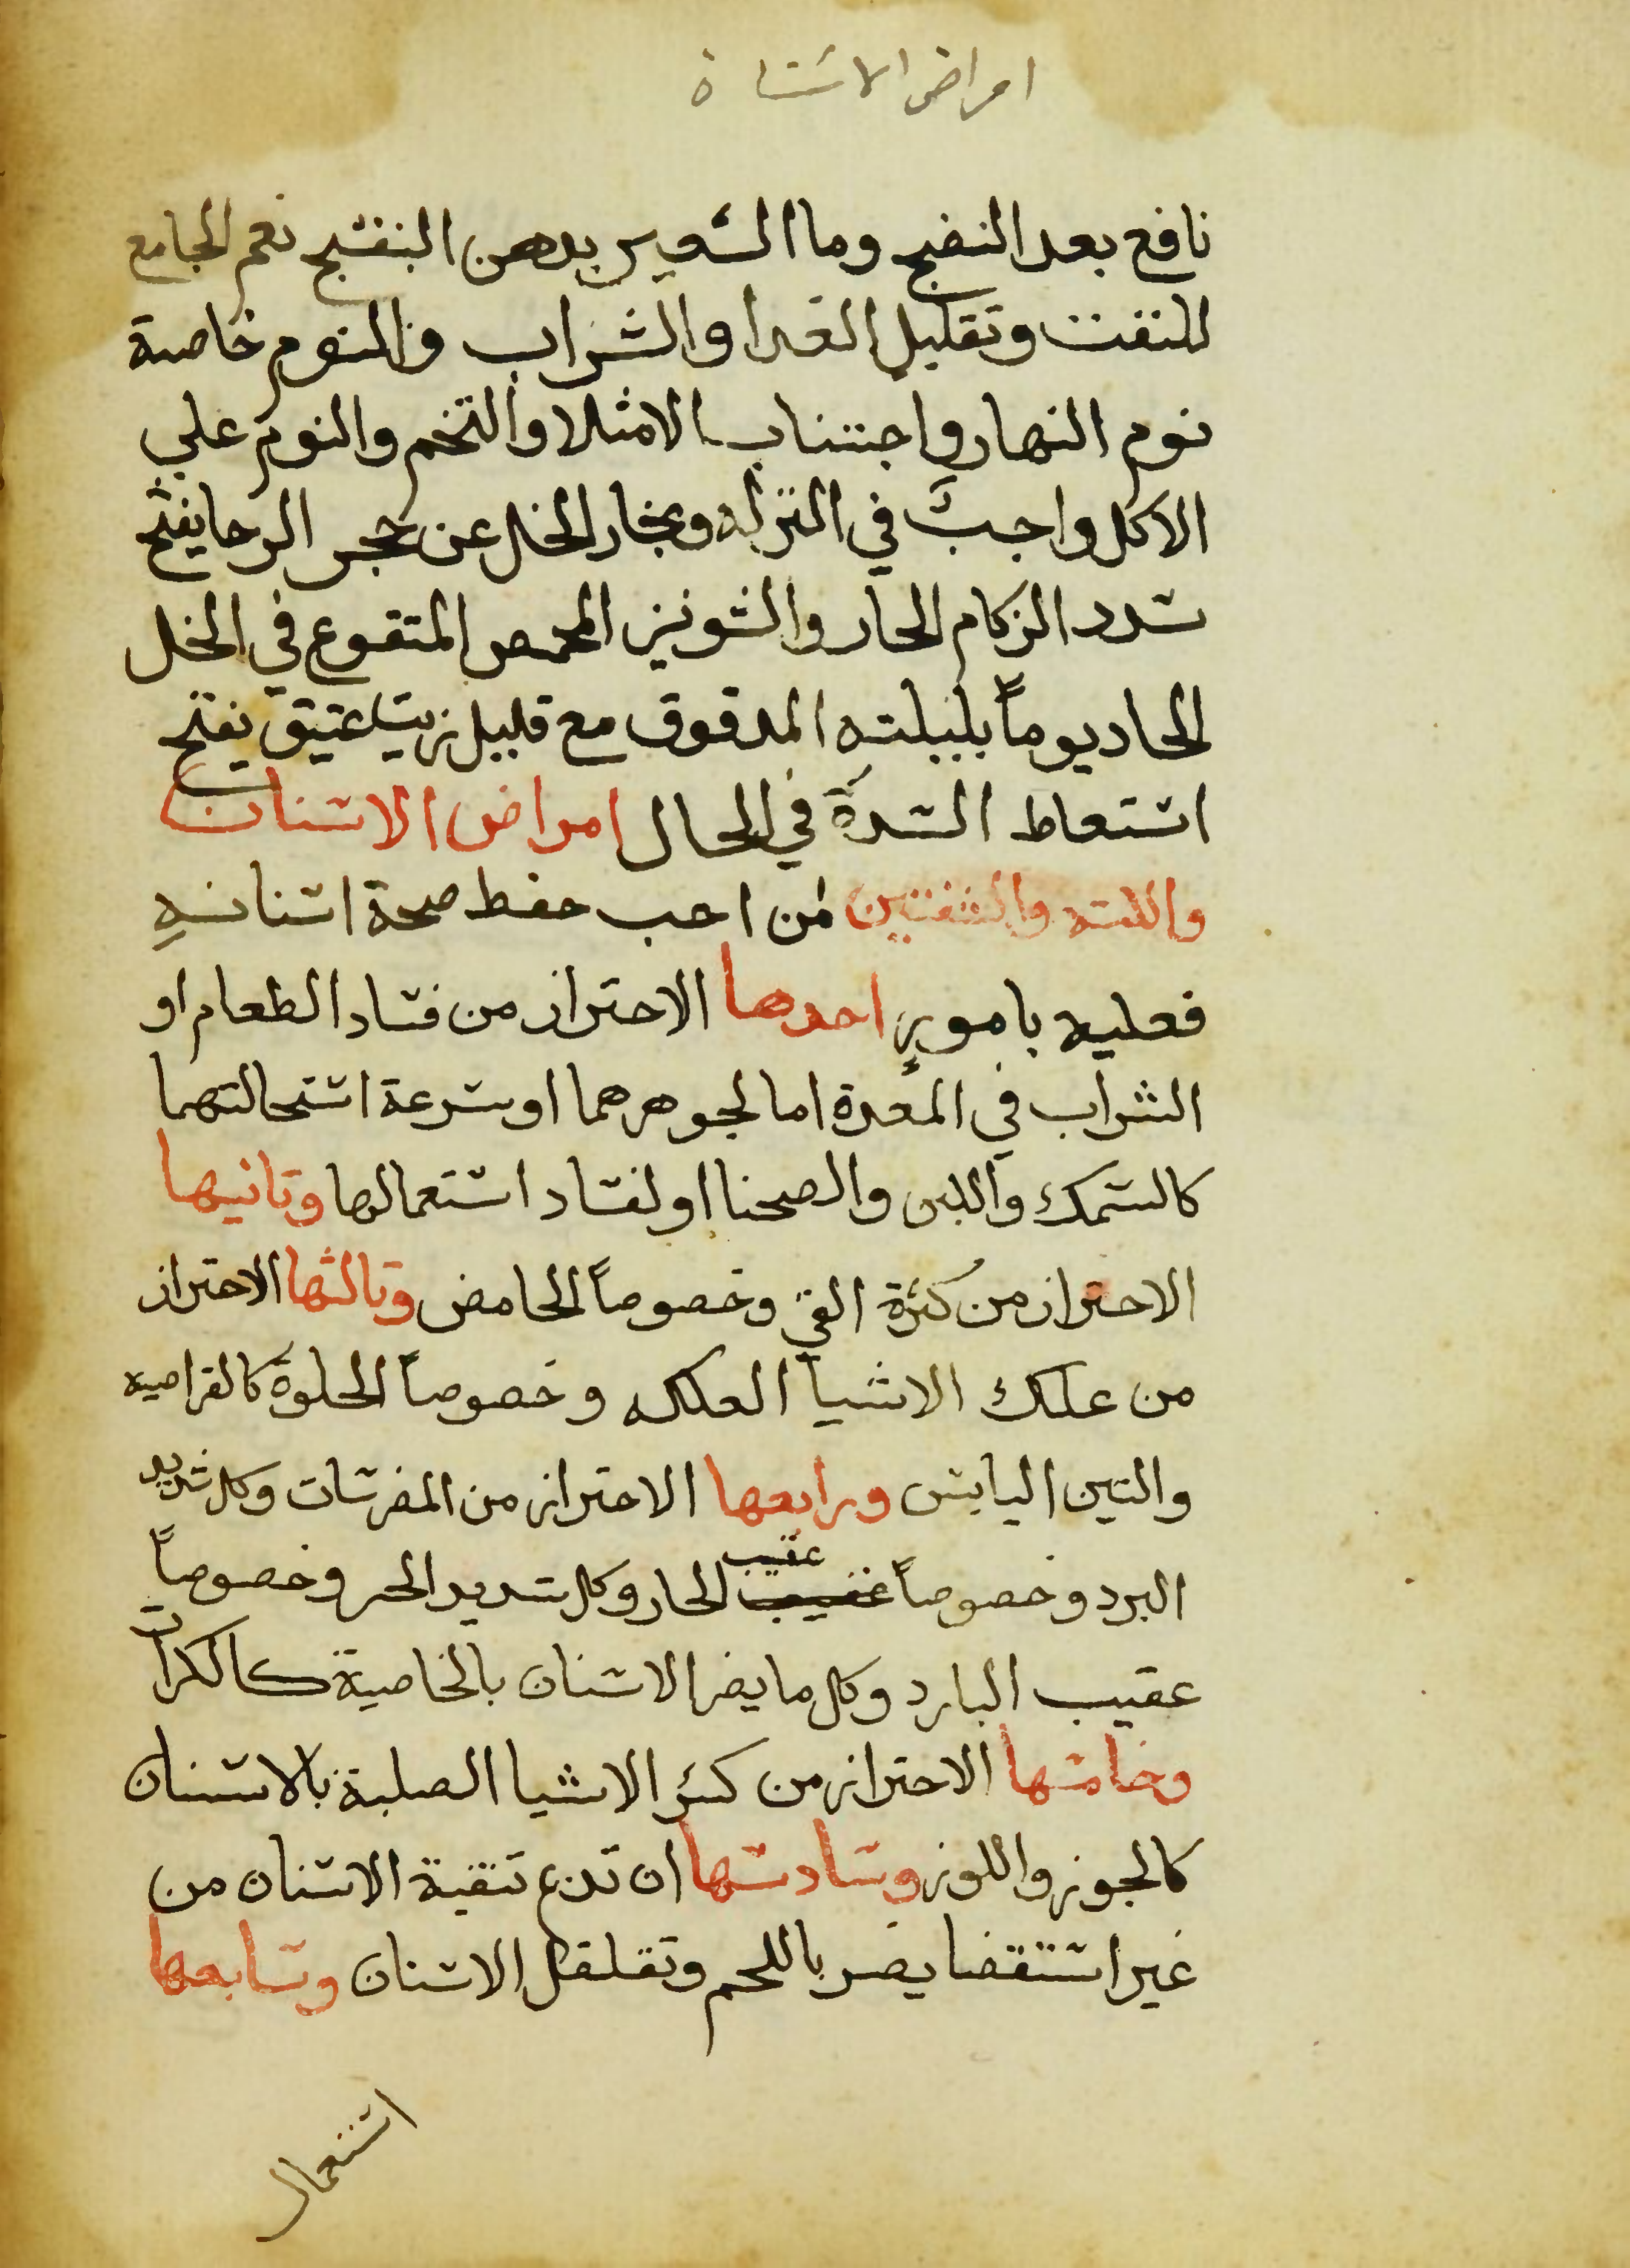 امراض الاسنان
نافع بعد النضج وما الشعير بدهن البنفسج نعم الجامع
للنفث وتقليل الغدا والشراب والنوم خاصة
نوم النهار واجتناب الامتلا والتخم والنوم علي
الاكل واجبٌ في النزله وبخار الخل عن حجر الرحا يفتح
سدد الزكام الحار والشونيز المحمص المنقوع في الخل
الحاد يوماً بليلته المدقوق مع قليل زيت عتيق يفتح
استعاط السدة في الحال امراض الاسنان
واللثه والشفتين من احب حفظ صحة اسنانهِ
فعليه بامورٍ احدها الاحتراز من فساد الطعام او
الشراب في المعدة اما لجوهرهما او سرعة استحالتهما
كالسمك واللبن والصحنا او لفساد استعمالها وثانيها
الاحتراز من كثرة القي وخصوصاً الحامض وثالثها الاحتراز
من علك الاشيا العلكه وخصوصاً الحلوة كالقراصيه
والتين اليابس ورابعها الاحتراز من المضرسات وكل شديد
البرد وخصوصاً عقيب عقيب الحار وكل شديد الحر وخصوصاً
عقيب البارد وكل ما يضر الاسنان بالخاصية كالكراث
وخامسها الاحتراز من كسر الاشيا الصلبة بالاسنان
كالجوز واللوز وسادسها ان تدع تنقية الاسنان من
غير استقضا يضر باللحم وتقلقل الاسنان وسابعها
استعمال